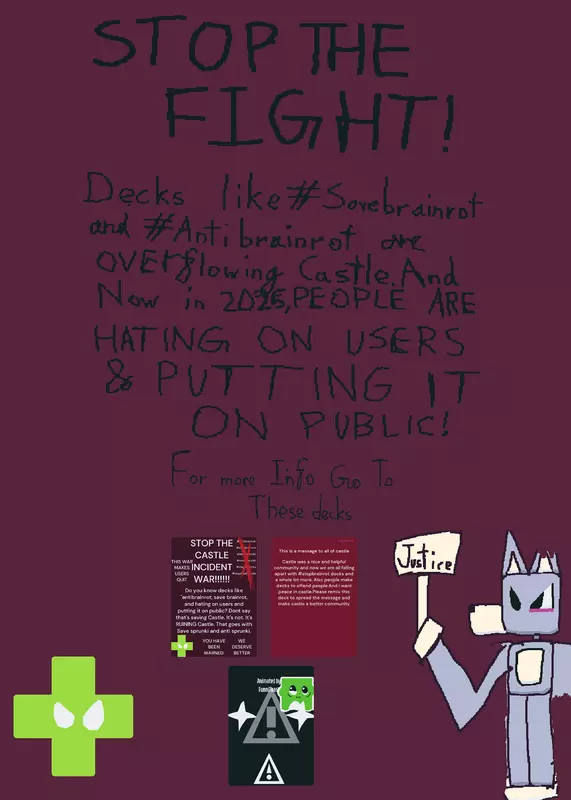 STOP THE
FIGHT!
Decks like #Savebrainrot
and #Antibrainrot are
OVERflowing Castle. And
Now in 2025, PEOPLE ARE
HATING ON USERS
& PUTTING IT
ON PUBLIC!
For more Info Go To
These decks
STOP THE
CASTLE
INCIDENT
WAR!!!!!!
THIS WAR
MAKES
USERS
QUIT
Do you know decks like
"antibrainrot, save brainrot,
and hating on users and
putting it on public? Dont say
that's saving Castle, It's not. It's
RUINING Castle. That goes with
Save sprunki and anti sprunki.
YOU HAVE
BEEN
WARNED
WE
DESERVE
BETTER
This is a message to all of castle
Castle was a nice and helpful
community and now we are all falling
apart with #stopbrainrot decks and
a whole lot more. Also people make
decks to offend people.And i want
peace in castle.Please remix this
deck to spread the message and
make castle a better community
Justice
Animated by